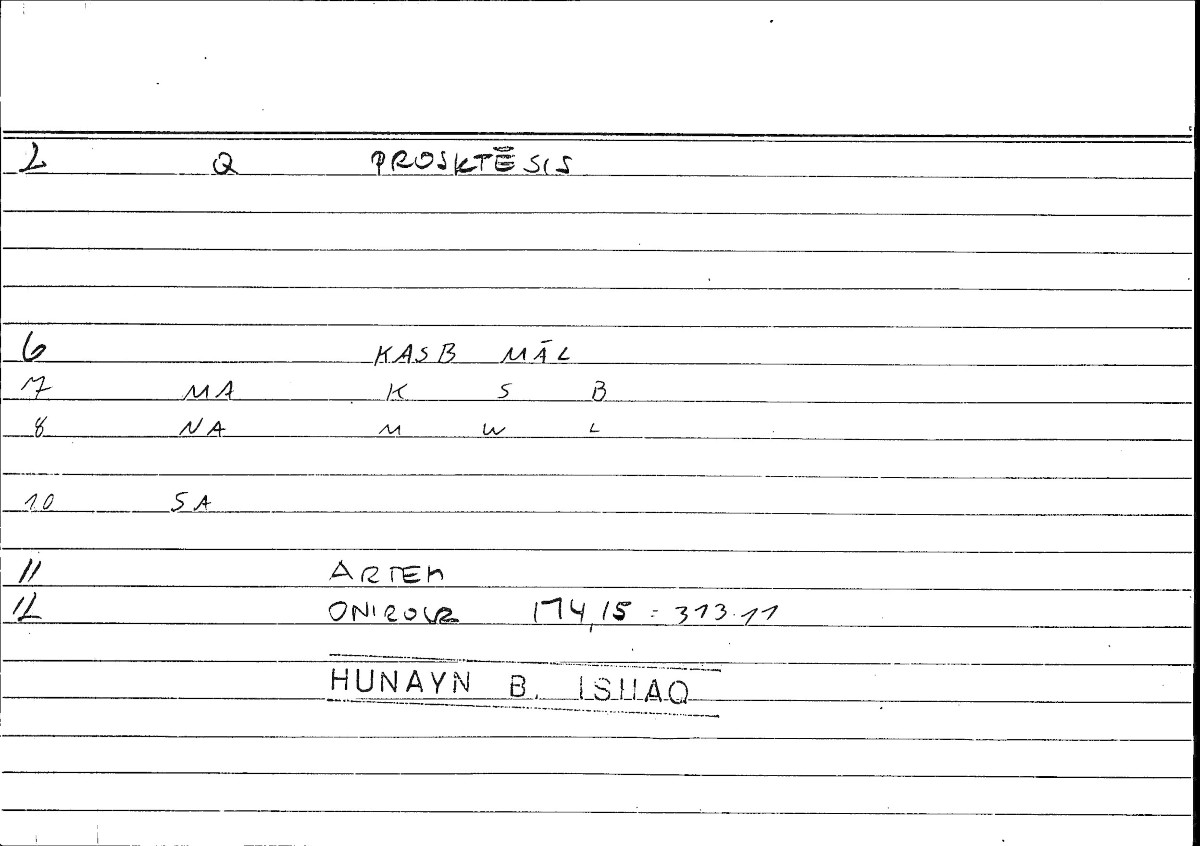 2 Q PROSKTĒSIS
6 KASB MĀL
7 MA K S B
8 NA M W L
10 SA
11 ARTEM
12 ONIROCR 174,15 = 313.11
HUNAYN B. ISHAQ